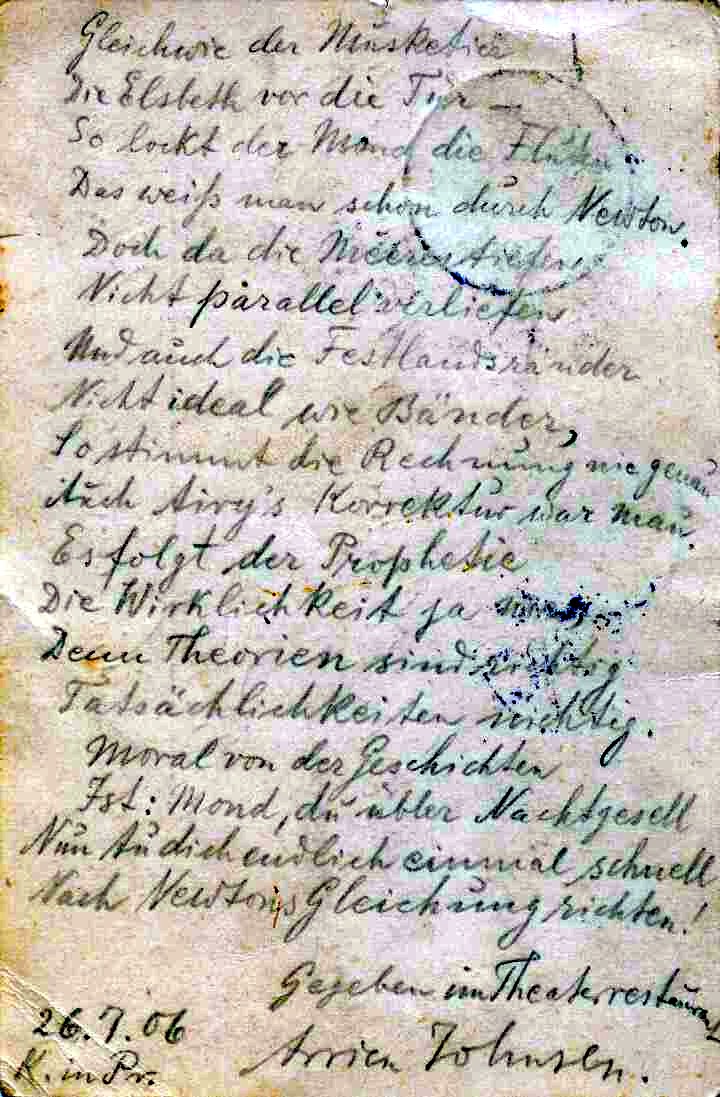 Gleichwie der Musketier
Die Elsbeth vor die Tür –
So lockt der Mond die Fluten
Das weiß man schon durch Newton.
Doch da die Meerestiefen
Nicht parallel verliefen
Und auch die Festlandsränder
Nicht ideal wie Bänder,
So stimmt die Rechnung nie genau
Auch Airy's Korrektur war mau.
Es folgt der Prophetie
Die Wirklichkeit ja
Denn Theorien sind
Tatsächlichkeiten nichtig.
Moral von der Geschichten
Ist: Mond, du übler Nachtgesell
Nun tu dich endlich einmal schnell
Nach Newtons Gleichung richten!
Gegeben im Theaterrestaurant
26.7.06
K. in Pr.
Arrien Johnsen.